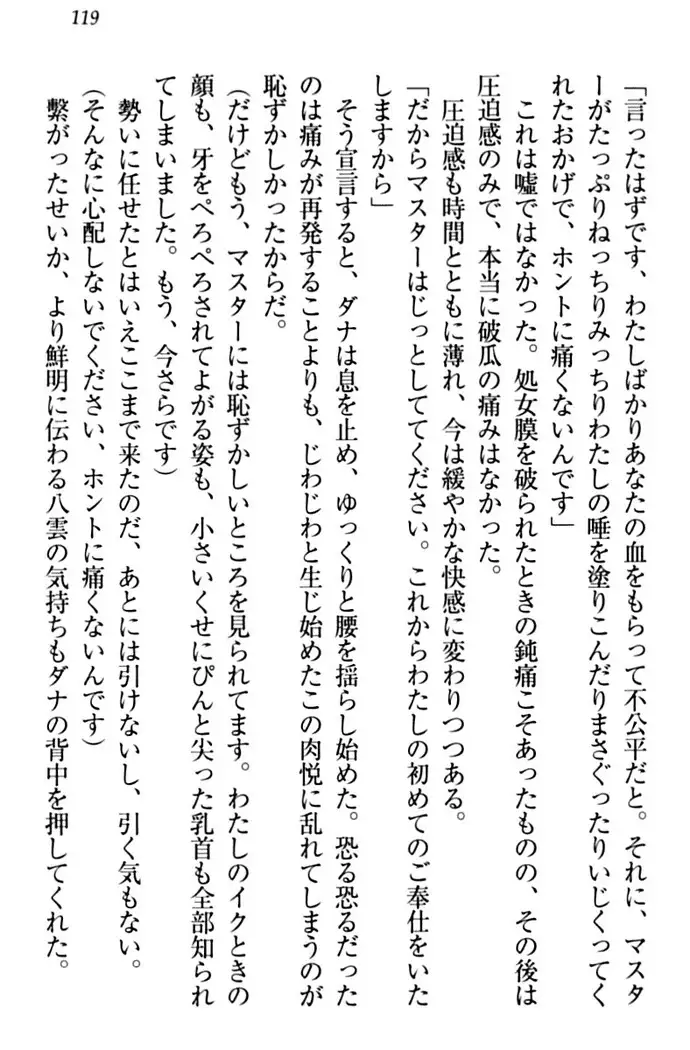 119
「言ったはずです、わたしばかりあなたの血をもらって不公平だと。それに、マスタ
ーがたっぷりねっちりみっちりわたしの唾を塗りこんだりまさぐったりいじくってく
れたおかげで、ホントに痛くないんです」
これは嘘ではなかった。処女膜を破られたときの鈍痛こそあったものの、その後は
圧迫感のみで、本当に破瓜の痛みはなかった。
圧迫感も時間とともに薄れ、今は緩やかな快感に変わりつつある。
「だからマスターはじっとしててください。これからわたしの初めてのご奉仕をいた
しますから」
そう宣言すると、ダナは息を止め、ゆっくりと腰を揺らし始めた。恐る恐るだった
のは痛みが再発することよりも、じわじわと生じ始めたこの肉悦に乱れてしまうのが
恥ずかしかったからだ。
(だけどもう、マスターには恥ずかしいところを見られてます。わたしのイクときの
顔も、牙をぺろぺろされてよがる姿も、小さいくせにぴんと尖った乳首も全部知られ
てしまいました。もう、今さらです)
勢いに任せたとはいえここまで来たのだ、あとには引けないし、引く気もない。
(そんなに心配しないでください、ホントに痛くないんです)
繋がったせいか、より鮮明に伝わる八雲の気持ちもダナの背中を押してくれた。